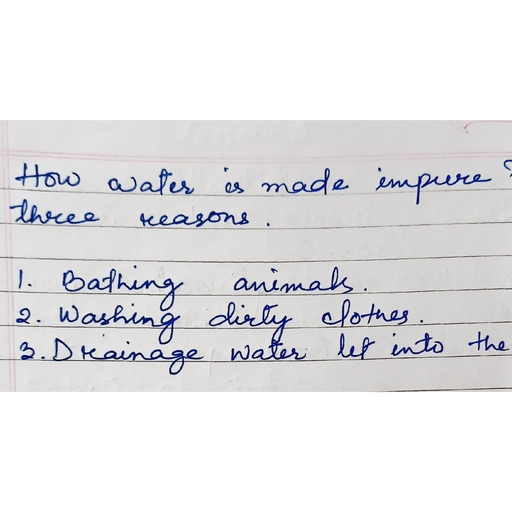 How water is made impure?
three reasons.
1. Bathing animals.
2. Washing dirty clothes.
3. Drainage water let into the